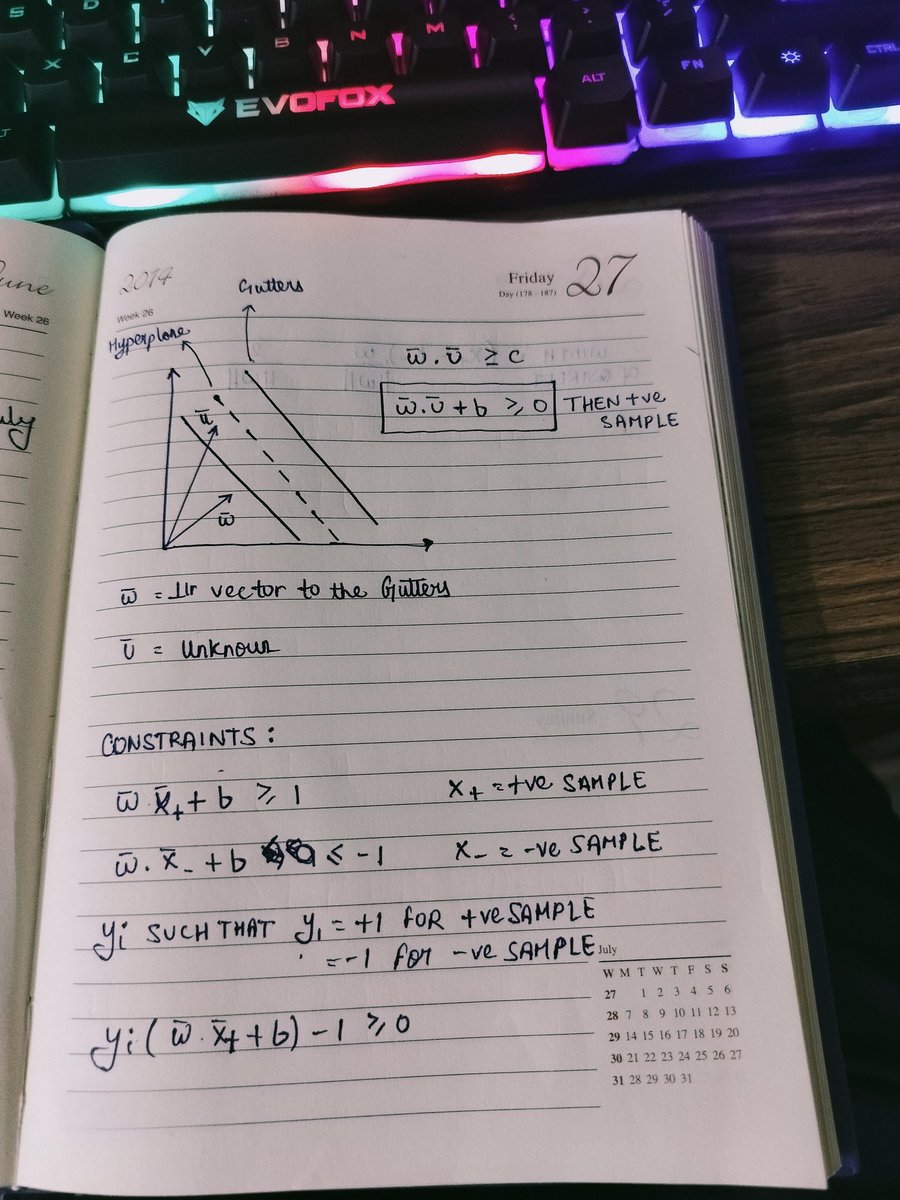 S D
X C V B N M
ALT FN CTRL
EVOFOX
June
Week 26
2014
Week 26
Friday 27
Day (178 - 187)
Gutters
Hyperplane
w̅ . u̅ ≥ c
w̅ . u̅ + b ≥ 0 THEN +ve
SAMPLE
u̅
w̅
w̅ = ⊥lr vector to the Gutters
u̅ = Unknown
CONSTRAINTS :
w̅ . x̅₊ + b ≥ 1 x₊ = +ve SAMPLE
w̅ . x̅₋ + b ≤ -1 x₋ = -ve SAMPLE
yi SUCH THAT y₁ = +1 FOR +ve SAMPLE
= -1 for -ve SAMPLE
yi ( w̅ . x̅₊ + b) - 1 ≥ 0
July
W M T W T F S S
27 1 2 3 4 5 6
28 7 8 9 10 11 12 13
29 14 15 16 17 18 19 20
30 21 22 23 24 25 26 27
31 28 29 30 31